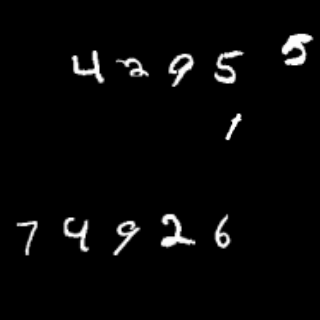 4295 5
1
74926